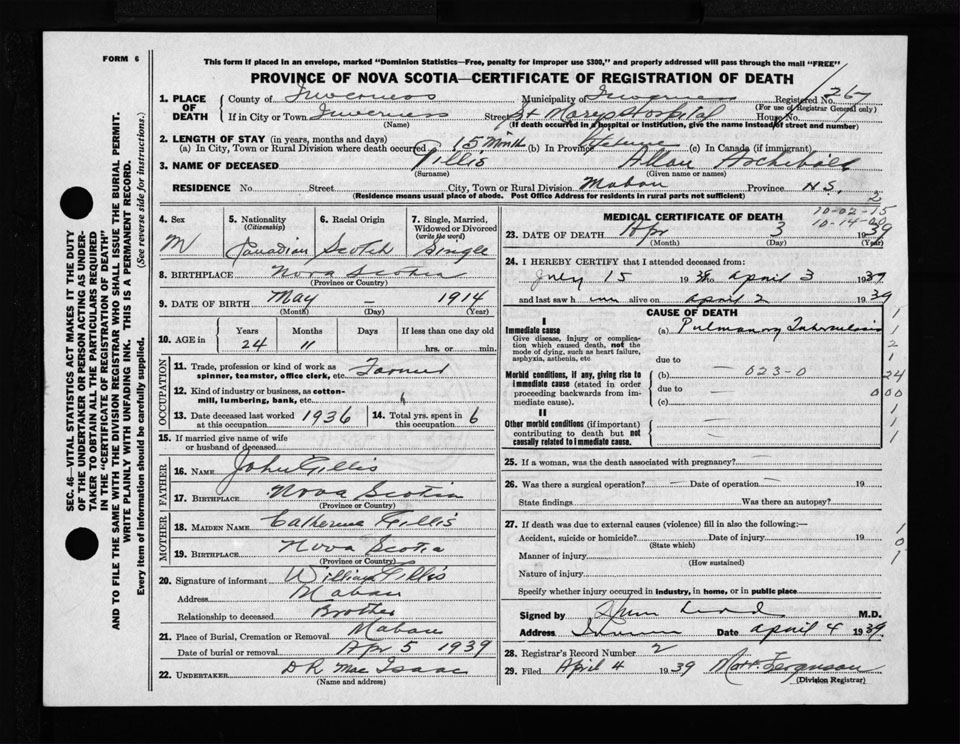 FORM 6
This form if placed in an envelope, marked "Dominion Statistics—Free, penalty for improper use $300," and properly addressed will pass through the mail "FREE"
PROVINCE OF NOVA SCOTIA—CERTIFICATE OF REGISTRATION OF DEATH
1. PLACE OF DEATH County of Inverness Municipality of Inverness Registered No. 267
(For use of Registrar General only)
If in City or Town Inverness Street St Marys Hospital House No.
(Name) (If death occurred in a hospital or institution, give the name instead of street and number)
2. LENGTH OF STAY (in years, months and days)
(a) In City, Town or Rural Division where death occurred 15 Month (b) In Province Lifetime (c) In Canada (if immigrant)
3. NAME OF DECEASED Gillis Allan Archibald
(Surname) (Given name or names)
RESIDENCE No. Street City, Town or Rural Division Mabou Province N.S.
(Residence means usual place of abode. Post Office Address for residents in rural parts not sufficient)
2
4. Sex 5. Nationality (Citizenship) 6. Racial Origin 7. Single, Married, Widowed or Divorced (write the word)
M Canadian Scotch Single
8. BIRTHPLACE Nova Scotia
(Province or Country)
9. DATE OF BIRTH May — 1914
(Month) (Day) (Year)
10. AGE in Years Months Days If less than one day old
24 11 hrs. or min.
OCCUPATION
11. Trade, profession or kind of work as spinner, teamster, office clerk, etc. Farmer
12. Kind of industry or business, as cotton-mill, lumbering, bank, etc.
13. Date deceased last worked at this occupation 1936 14. Total yrs. spent in this occupation 6
15. If married give name of wife or husband of deceased
FATHER
16. NAME John Gillis
17. BIRTHPLACE Nova Scotia
(Province or Country)
MOTHER
18. MAIDEN NAME Catherine Gillis
19. BIRTHPLACE Nova Scotia
(Province or Country)
20. Signature of informant William Gillis
Address Mabou
Relationship to deceased Brother
21. Place of Burial, Cremation or Removal Mabou
Date of burial or removal Apr 5 1939
22. UNDERTAKER D R. MacIsaac
(Name and address)
MEDICAL CERTIFICATE OF DEATH
10-02-15
23. DATE OF DEATH Apr 3 1939
(Month) (Day) (Year)
24. I HEREBY CERTIFY that I attended deceased from:
July 15 1938 to April 3 1939
and last saw him alive on April 2 1939
CAUSE OF DEATH
I
Immediate cause (a) Pulmonary Tuberculosis
Give disease, injury or complication which caused death, not the mode of dying, such as heart failure, asphyxia, asthenia, etc.
due to
Morbid conditions, if any, giving rise to immediate cause (stated in order proceeding backwards from immediate cause).
(b) 023-0
due to
(c)
II
Other morbid conditions (if important) contributing to death but not causally related to immediate cause.
1
1
2
1
24
000
1
1
25. If a woman, was the death associated with pregnancy?
26. Was there a surgical operation? — Date of operation — 19
State findings Was there an autopsy?
27. If death was due to external causes (violence) fill in also the following:—
Accident, suicide or homicide? Date of injury 19
(State which)
Manner of injury
(How sustained)
Nature of injury
1
0
1
Specify whether injury occurred in industry, in home, or in public place
Signed by M.D.
Address Date April 4 1939
28. Registrar's Record Number 2
29. Filed April 4 1939 Matt. Ferguson
(Division Registrar)
SEC. 46—VITAL STATISTICS ACT MAKES IT THE DUTY
OF THE UNDERTAKER OR PERSON ACTING AS UNDER-
TAKER TO OBTAIN ALL THE PARTICULARS REQUIRED
IN THE "CERTIFICATE OF REGISTRATION OF DEATH"
AND TO FILE THE SAME WITH THE DIVISION REGISTRAR WHO SHALL ISSUE THE BURIAL PERMIT.
WRITE PLAINLY WITH UNFADING INK. THIS IS A PERMANENT RECORD.
Every item of information should be carefully supplied. (See reverse side for instructions.)